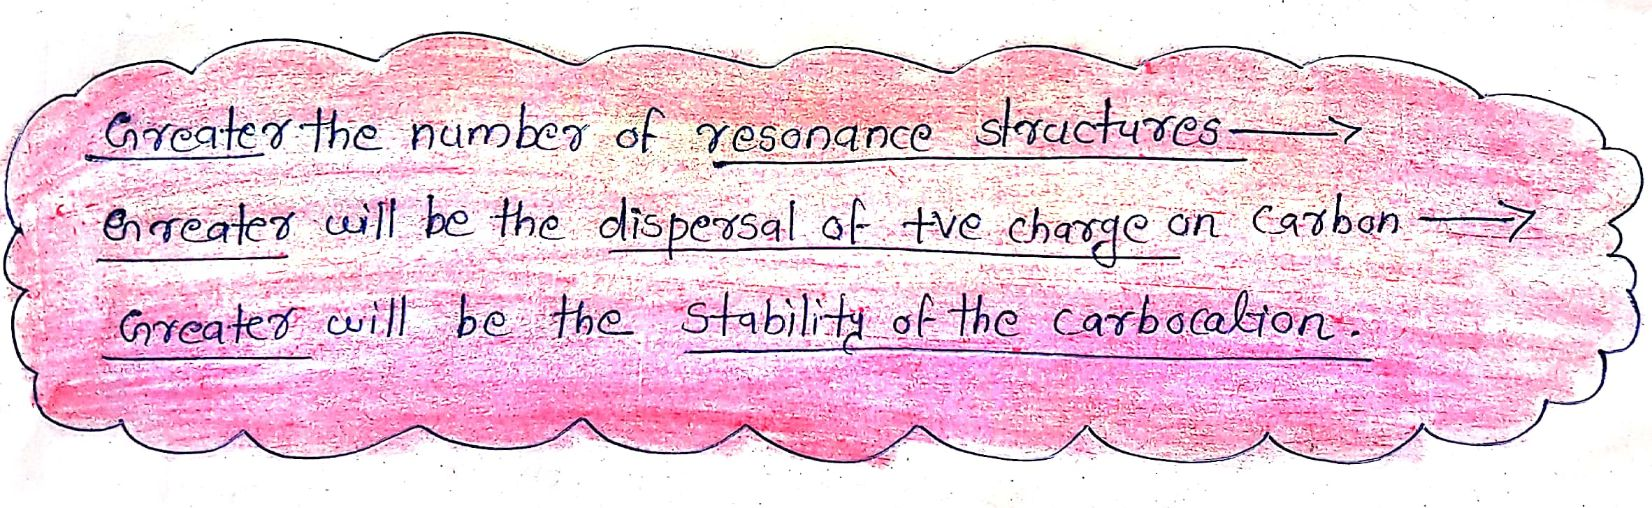 Greater the number of resonance structures →
Greater will be the dispersal of +ve charge on carbon →
Greater will be the stability of the carbocation.